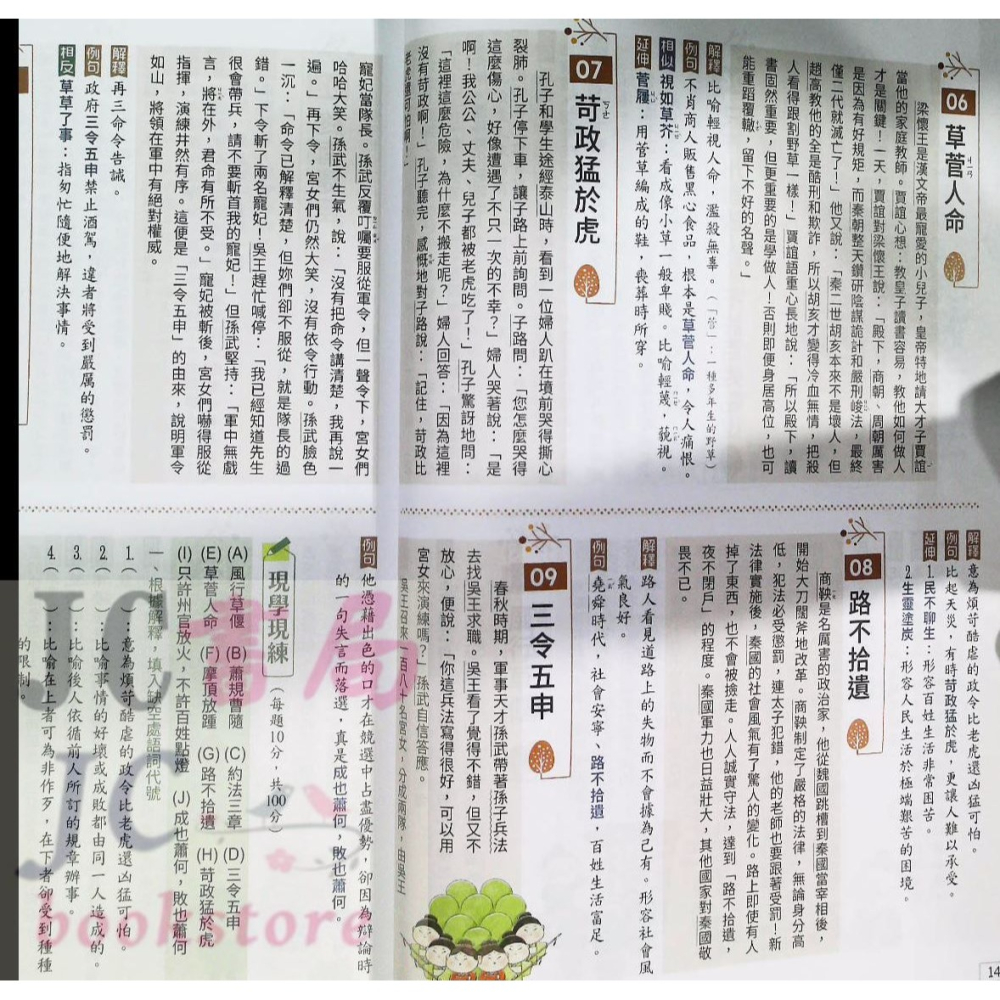 06 草菅人命
梁懷王是漢文帝最寵愛的小兒子，皇帝特地請大才子賈誼
當他的家庭教師。賈誼心想：教皇子讀書容易，教他如何做人
才是關鍵！一天，賈誼對梁懷王說：「殿下，商朝、周朝厲害
是因為有好規矩，而秦朝整天鑽研陰謀詭計和嚴刑峻法，最終
僅二代就滅亡了！」他又說：「秦二世胡亥本來不是壞人，但
趙高教他的全是酷刑和欺詐，所以胡亥才變得冷血無情，把殺
人看得跟割野草一樣！」賈誼語重心長地說：「所以殿下，讀
書固然重要，但更重要的是學做人！否則即便身居高位，也可
能重蹈覆轍，留下不好的名聲。」
解釋 比喻輕視人命，濫殺無辜。（「菅」：一種多年生的野草）
例句 不肖商人販售黑心食品，根本是草菅人命，令人痛恨。
相似 視如草芥：看成像小草一般卑賤。比喻輕蔑，藐視。
延伸 菅屨：用菅草編成的鞋，喪葬時所穿。
07 苛政猛於虎
孔子和學生途經泰山時，看到一位婦人趴在墳前哭得撕心
裂肺。孔子停下車，讓子路上前詢問。子路問：「您怎麼哭得
這麼傷心，好像遭遇了不只一次的不幸？」婦人哭著說：「是
啊！我公公、丈夫、兒子都被老虎吃了！」孔子驚訝地問：
「這裡這麼危險，為什麼不搬走呢？」婦人回答：「因為這裡
沒有苛政啊！」孔子聽完，感慨地對子路說：「記住，苛政比
老虎還可怕啊！」
解釋 意為煩苛酷虐的政令比老虎還凶猛可怕。
例句 比起天災，有時苛政猛於虎，更讓人難以承受。
延伸 1.民不聊生：形容百姓生活非常困苦。
2.生靈塗炭：形容人民生活於極端艱苦的困境。
08 路不拾遺
商鞅是名厲害的政治家，他從魏國跳槽到秦國當宰相後，
開始大刀闊斧地改革。商鞅制定了嚴格的法律，無論身分高
低，犯法必受懲罰，連太子犯錯，他的老師也要跟著受罰！新
法律實施後，秦國的社會風氣有了驚人的變化。路上即使有人
掉了東西，也不會被撿走。人人誠實守法，達到「路不拾遺，
夜不閉戶」的程度。秦國軍力也日益壯大，其他國家對秦國敬
畏不已。
解釋 路人看見道路上的失物而不會據為己有。形容社會風
氣良好。
例句 堯舜時代，社會安寧、路不拾遺，百姓生活富足。
09 三令五申
春秋時期，軍事天才孫武帶著孫子兵法
去找吳王求職。吳王看了覺得不錯，但又不
放心，便說：「你這兵法寫得很好，可以用
宮女來演練嗎？」孫武自信答應。
吳王召來一百八十名宮女，分成兩隊，由吳王
14
寵妃當隊長。孫武反覆叮囑要服從軍令，但一聲令下，宮女們
哈哈大笑。孫武不生氣，說：「沒有把命令講清楚，我再說一
遍。」再下令，宮女們仍然大笑，沒有依令行動。孫武臉色
一沉：「命令已解釋清楚，但妳們卻不服從，就是隊長的過
錯。」下令斬了兩名寵妃！吳王趕忙喊停：「我已經知道先生
很會帶兵，請不要斬首我的寵妃！」但孫武堅持：「軍中無戲
言，將在外，君命有所不受。」寵妃被斬後，宮女們嚇得服從
指揮，演練井然有序。這便是「三令五申」的由來，說明軍令
如山，將領在軍中有絕對權威。
解釋 再三命令告誡。
例句 政府三令五申禁止酒駕，違者將受到嚴厲的懲罰。
相反 草草了事：指匆忙隨便地解決事情。
例句 他憑藉出色的口才在競選中占盡優勢，卻因為辯論時
的一句失言而落選，真是成也蕭何，敗也蕭何。
現學現練（每題10分，共100分）
(A) 風行草偃 (B) 蕭規曹隨 (C) 約法三章 (D) 三令五申
(E) 草菅人命 (F) 摩頂放踵 (G) 路不拾遺 (H) 苛政猛於虎
(I) 只許州官放火，不許百姓點燈 (J) 成也蕭何，敗也蕭何
一、根據解釋，填入缺空處語詞代號
1.（ ）：意為煩苛酷虐的政令比老虎還凶猛可怕。
2.（ ）：比喻事情的好壞或成敗都由同一人造成的。
3.（ ）：比喻後人依循前人所訂的規章辦事。
4.（ ）：比喻在上者可為非作歹，在下者卻受到種種
的限制。
JC書局
JC
bookstore